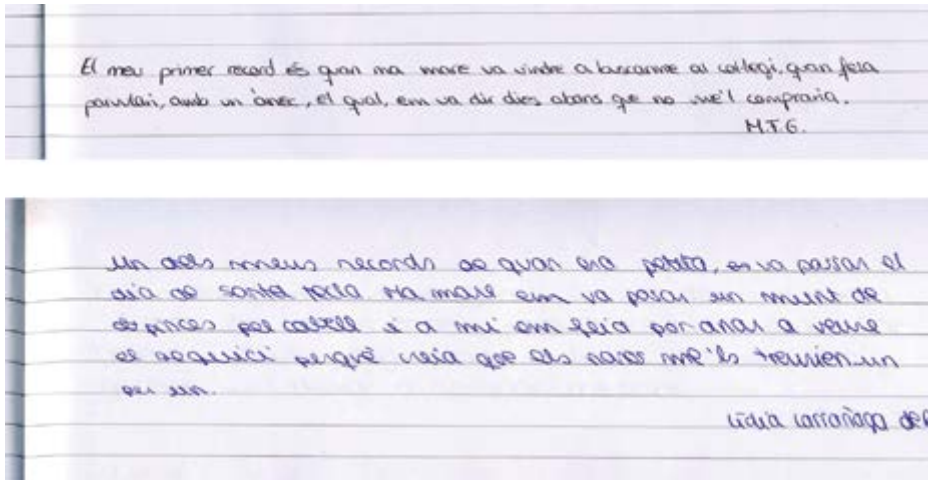 El meu primer record és quan ma mare va vindre a buscarme al col·legi, quan feia
parvulari, amb un ànec, el qual, em va dir dies abans que no me'l compraria.
M.F.G.
Un dels meus records de quan era petita, es va passar el
dia de santa tecla. Ma mare em va posar un munt de
despinces pel cabell i a mi em feia por anar a veure
el seguici perquè creia que els nanos me'ls treurien un
per un.
Lídia Larrañaga